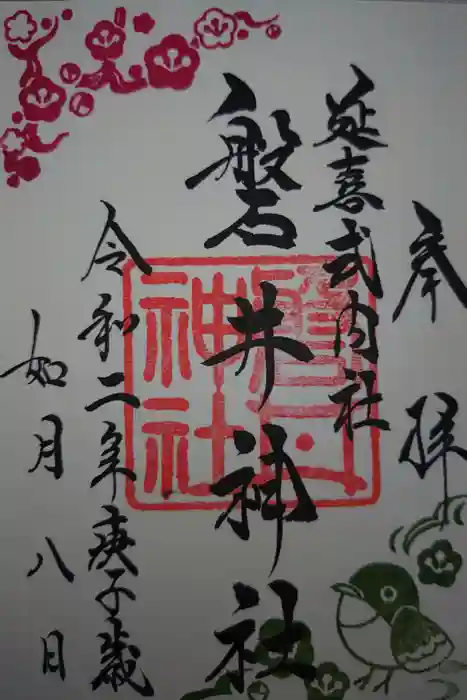 奉拝
延喜式内社
磐井神社
令和二年庚子歳
如月八日
磐井神社